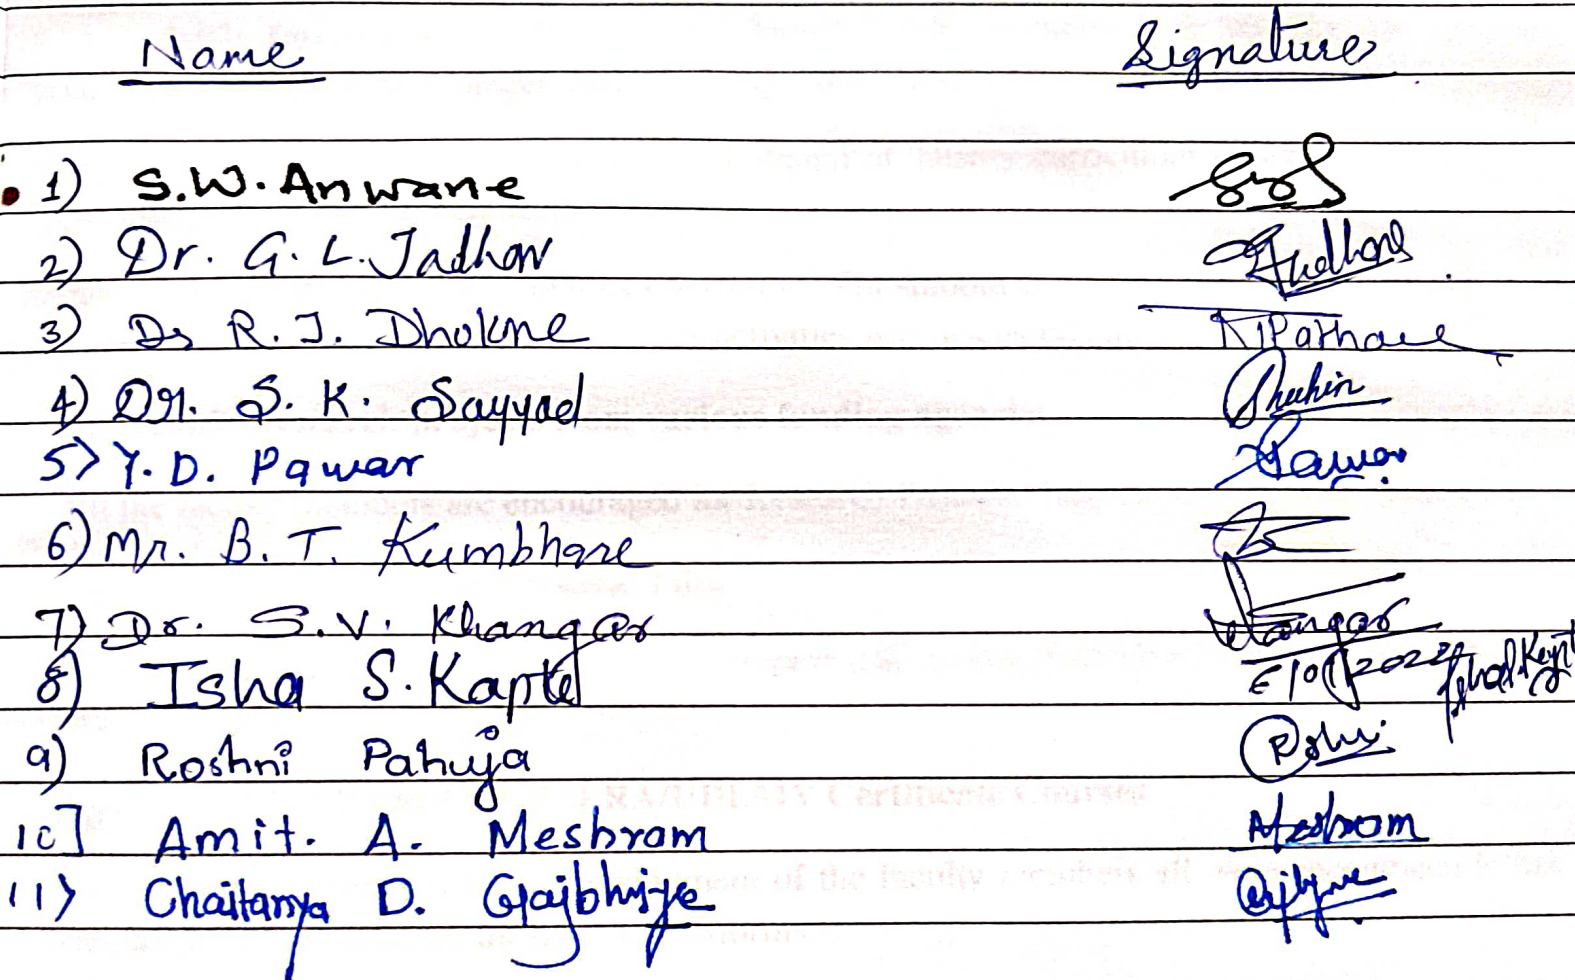 Name Signature
1) S.W. Anwane
2) Dr. G. L. Jadhav Jadhav
3) Dr R. J. Dhokne RJPathare
4) Dr. S. K. Sayyad Shuhin
5) Y. D. Pawar Pawar
6) Mr. B. T. Kumbhare
7) Dr. S. V. Khangar Khangar
8) Isha S. Kapte
9) Roshni Pahuja
10] Amit. A. Meshram Meshram
11) Chaitanya D. Gajbhiye